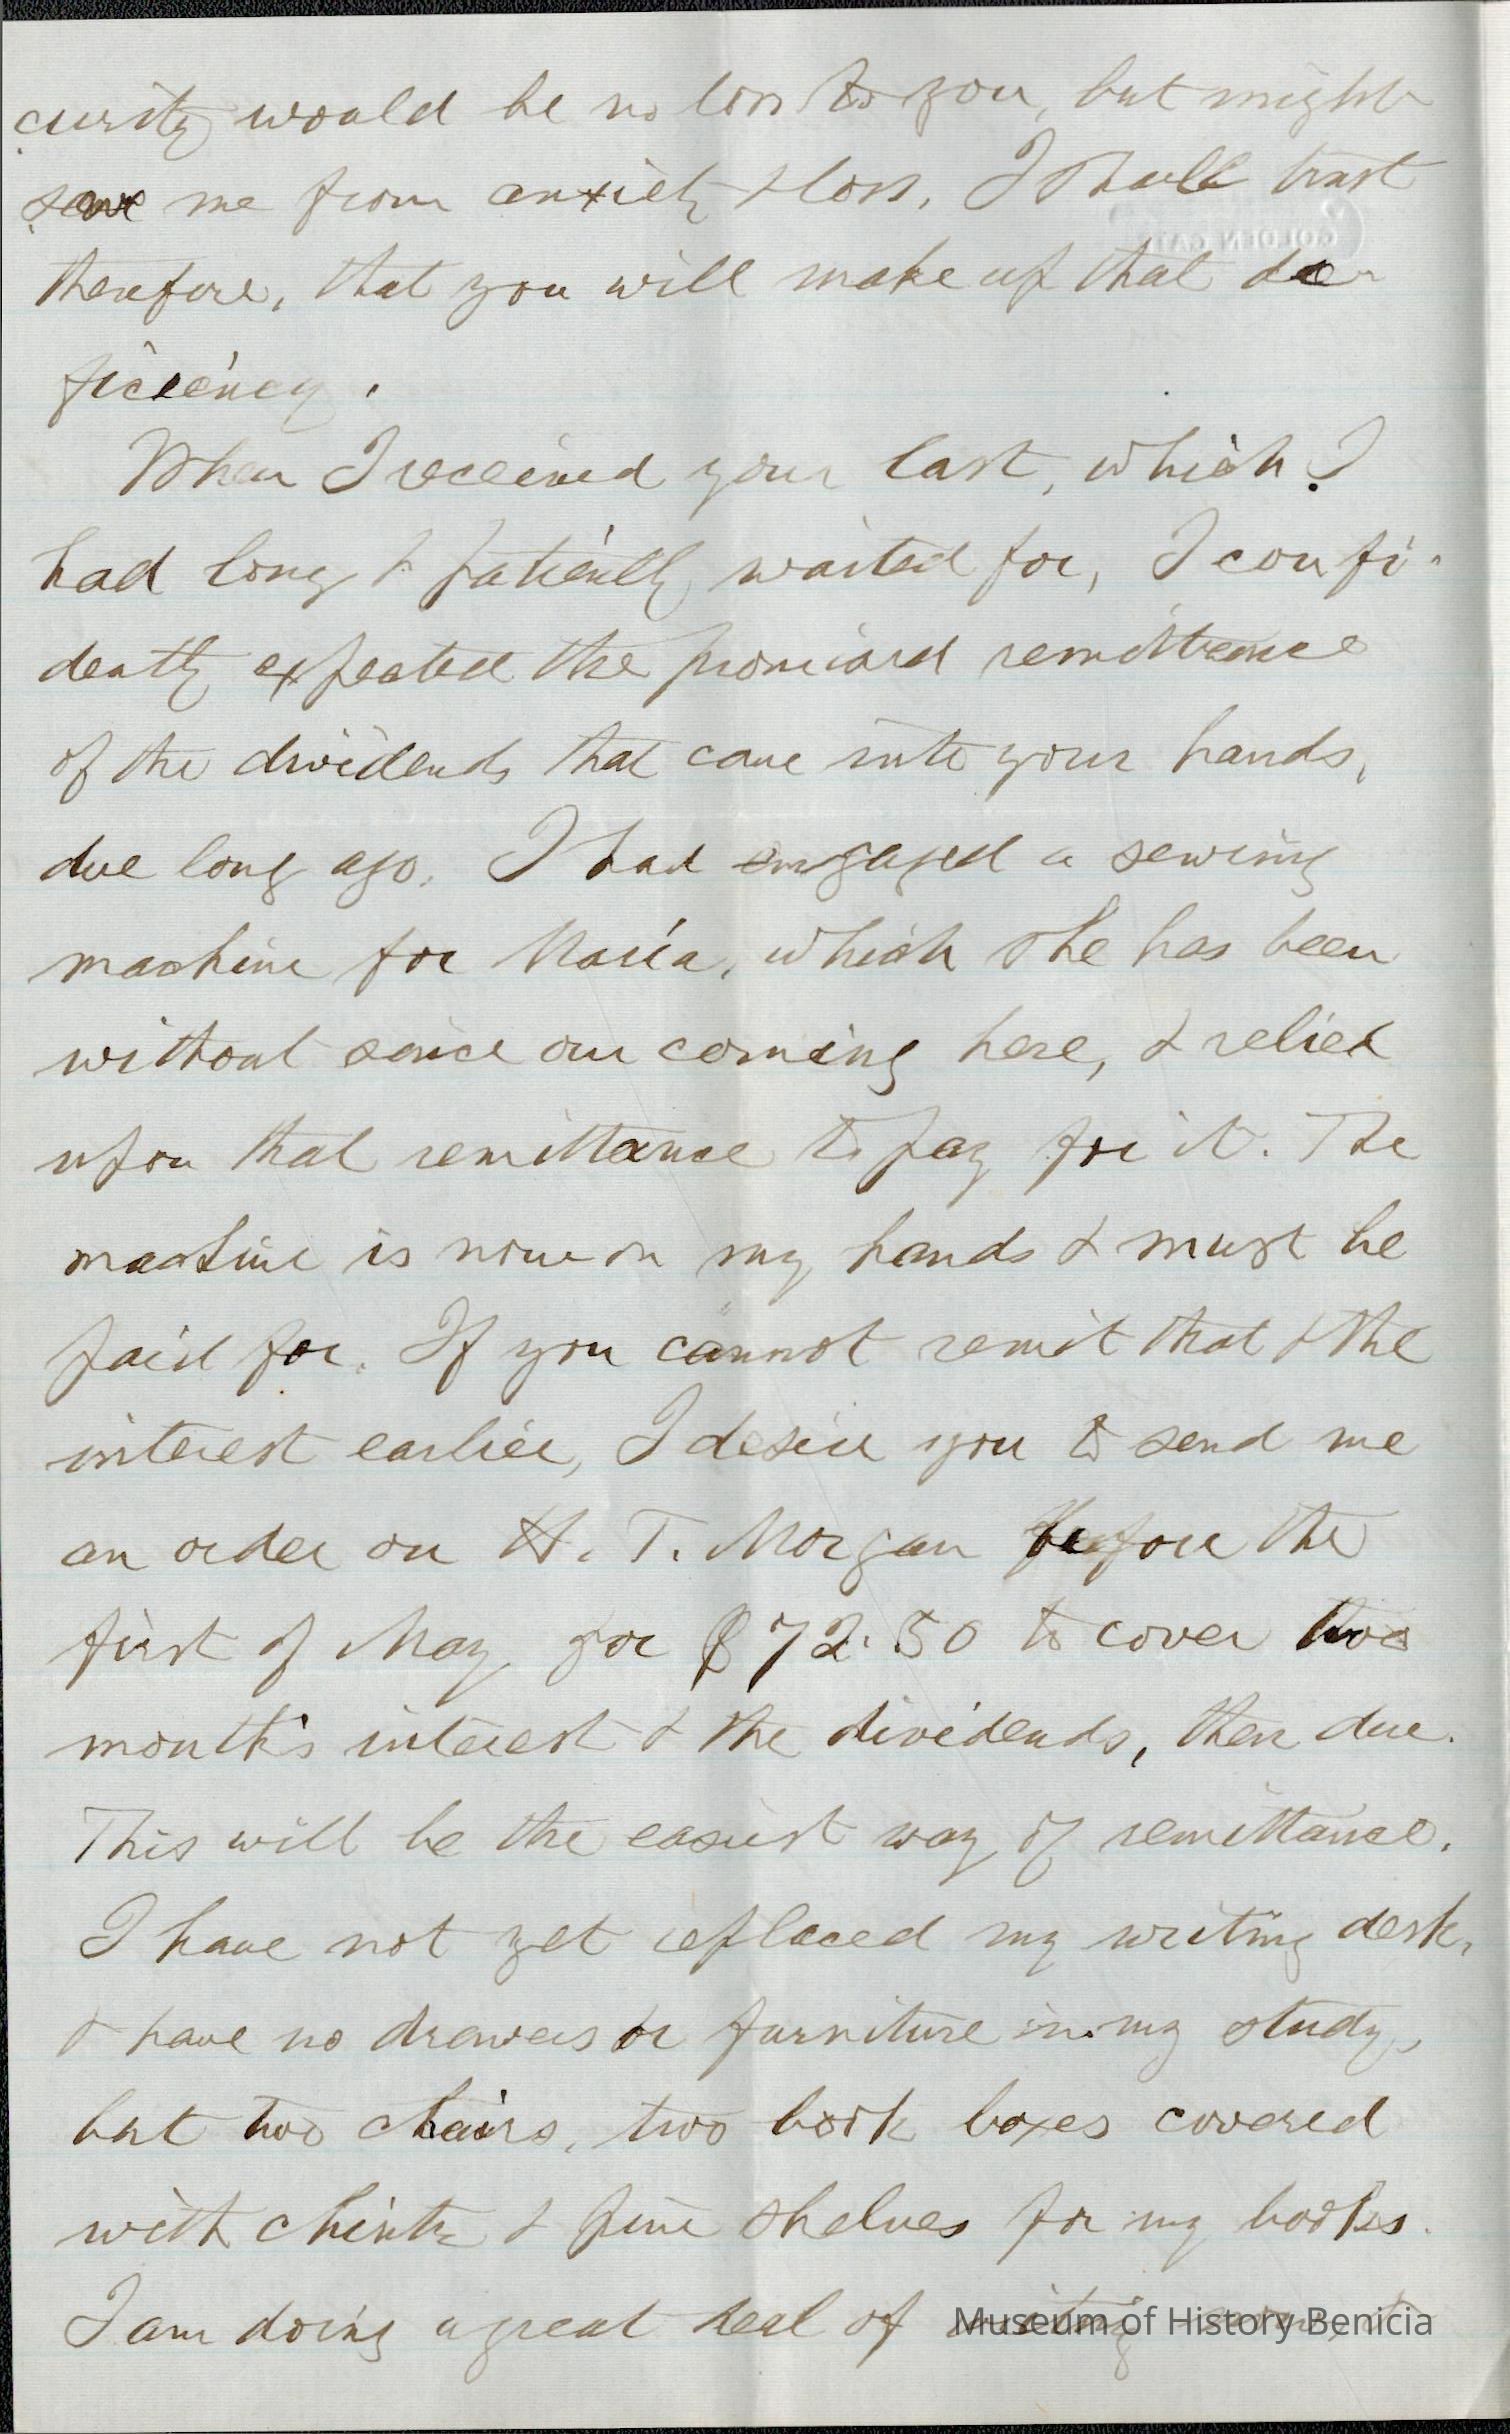 curity would be no loss to you, but might
save me from anxiety & loss. I shall trust
GOLDEN GATE
therefore, that you will make up that de-
ficiency.
When I received your last, which I
had long & patiently waited for, I confi-
dently expected the promised remittance
of the dividends that came into your hands,
due long ago. I had engaged a sewing
machine for Maria, which she has been
without since our coming here, & relied
upon that remittance to pay for it. The
machine is now on my hands & must be
paid for. If you cannot remit that & the
interest earlier, I desire you to send me
an order on H. T. Morgan before the
first of May for $72.50 to cover two
month's interest & the dividends, then due.
This will be the easiest way of remittance.
I have not yet replaced my writing desk,
& have no drawers or furniture in my study,
but two chairs, two book boxes covered
with chintz & pine shelves for my books.
I am doing a great deal of writing
Museum of History Benicia